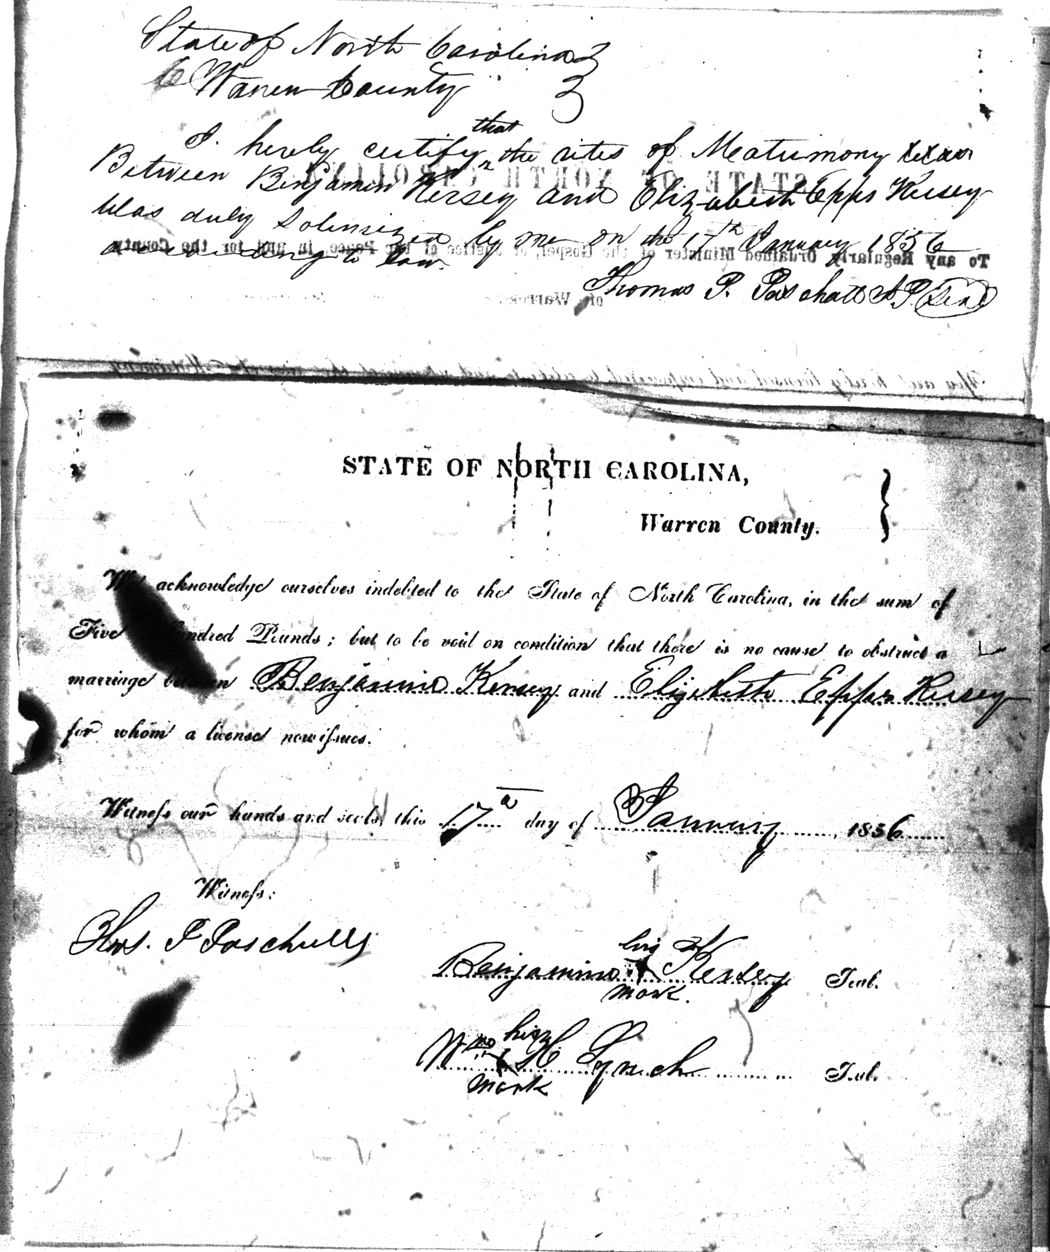 State of North Carolina
Warren County
I hereby certify that the rites of Matrimony
Between Benjamin Kersey and Elizabeth Epps Kersey
Was duly Solemnized by me on the 17th January 1856
according to law.
Thomas P. Paschall J.P. Seal
STATE OF NORTH CAROLINA
To any Regularly Ordained Minister of the Gospel, or Justice of the Peace, in and for the County
of Warren
You are hereby licensed and empowered to celebrate and solemnize the rites of Matrimony
STATE OF NORTH CAROLINA,
Warren County.
We acknowledge ourselves indebted to the State of North Carolina, in the sum of
Five Hundred Pounds; but to be void on condition that there is no cause to obstruct a
marriage between Benjamine Kersey and Elizabeth Epps Kersey
for whom a license now issues.
Witness our hands and seals, this 17th day of January, 1856
Witness:
Thos. P Paschall
his
Benjamine X Kersey Seal.
mark.
his
Wm X H Lynch Seal.
mark